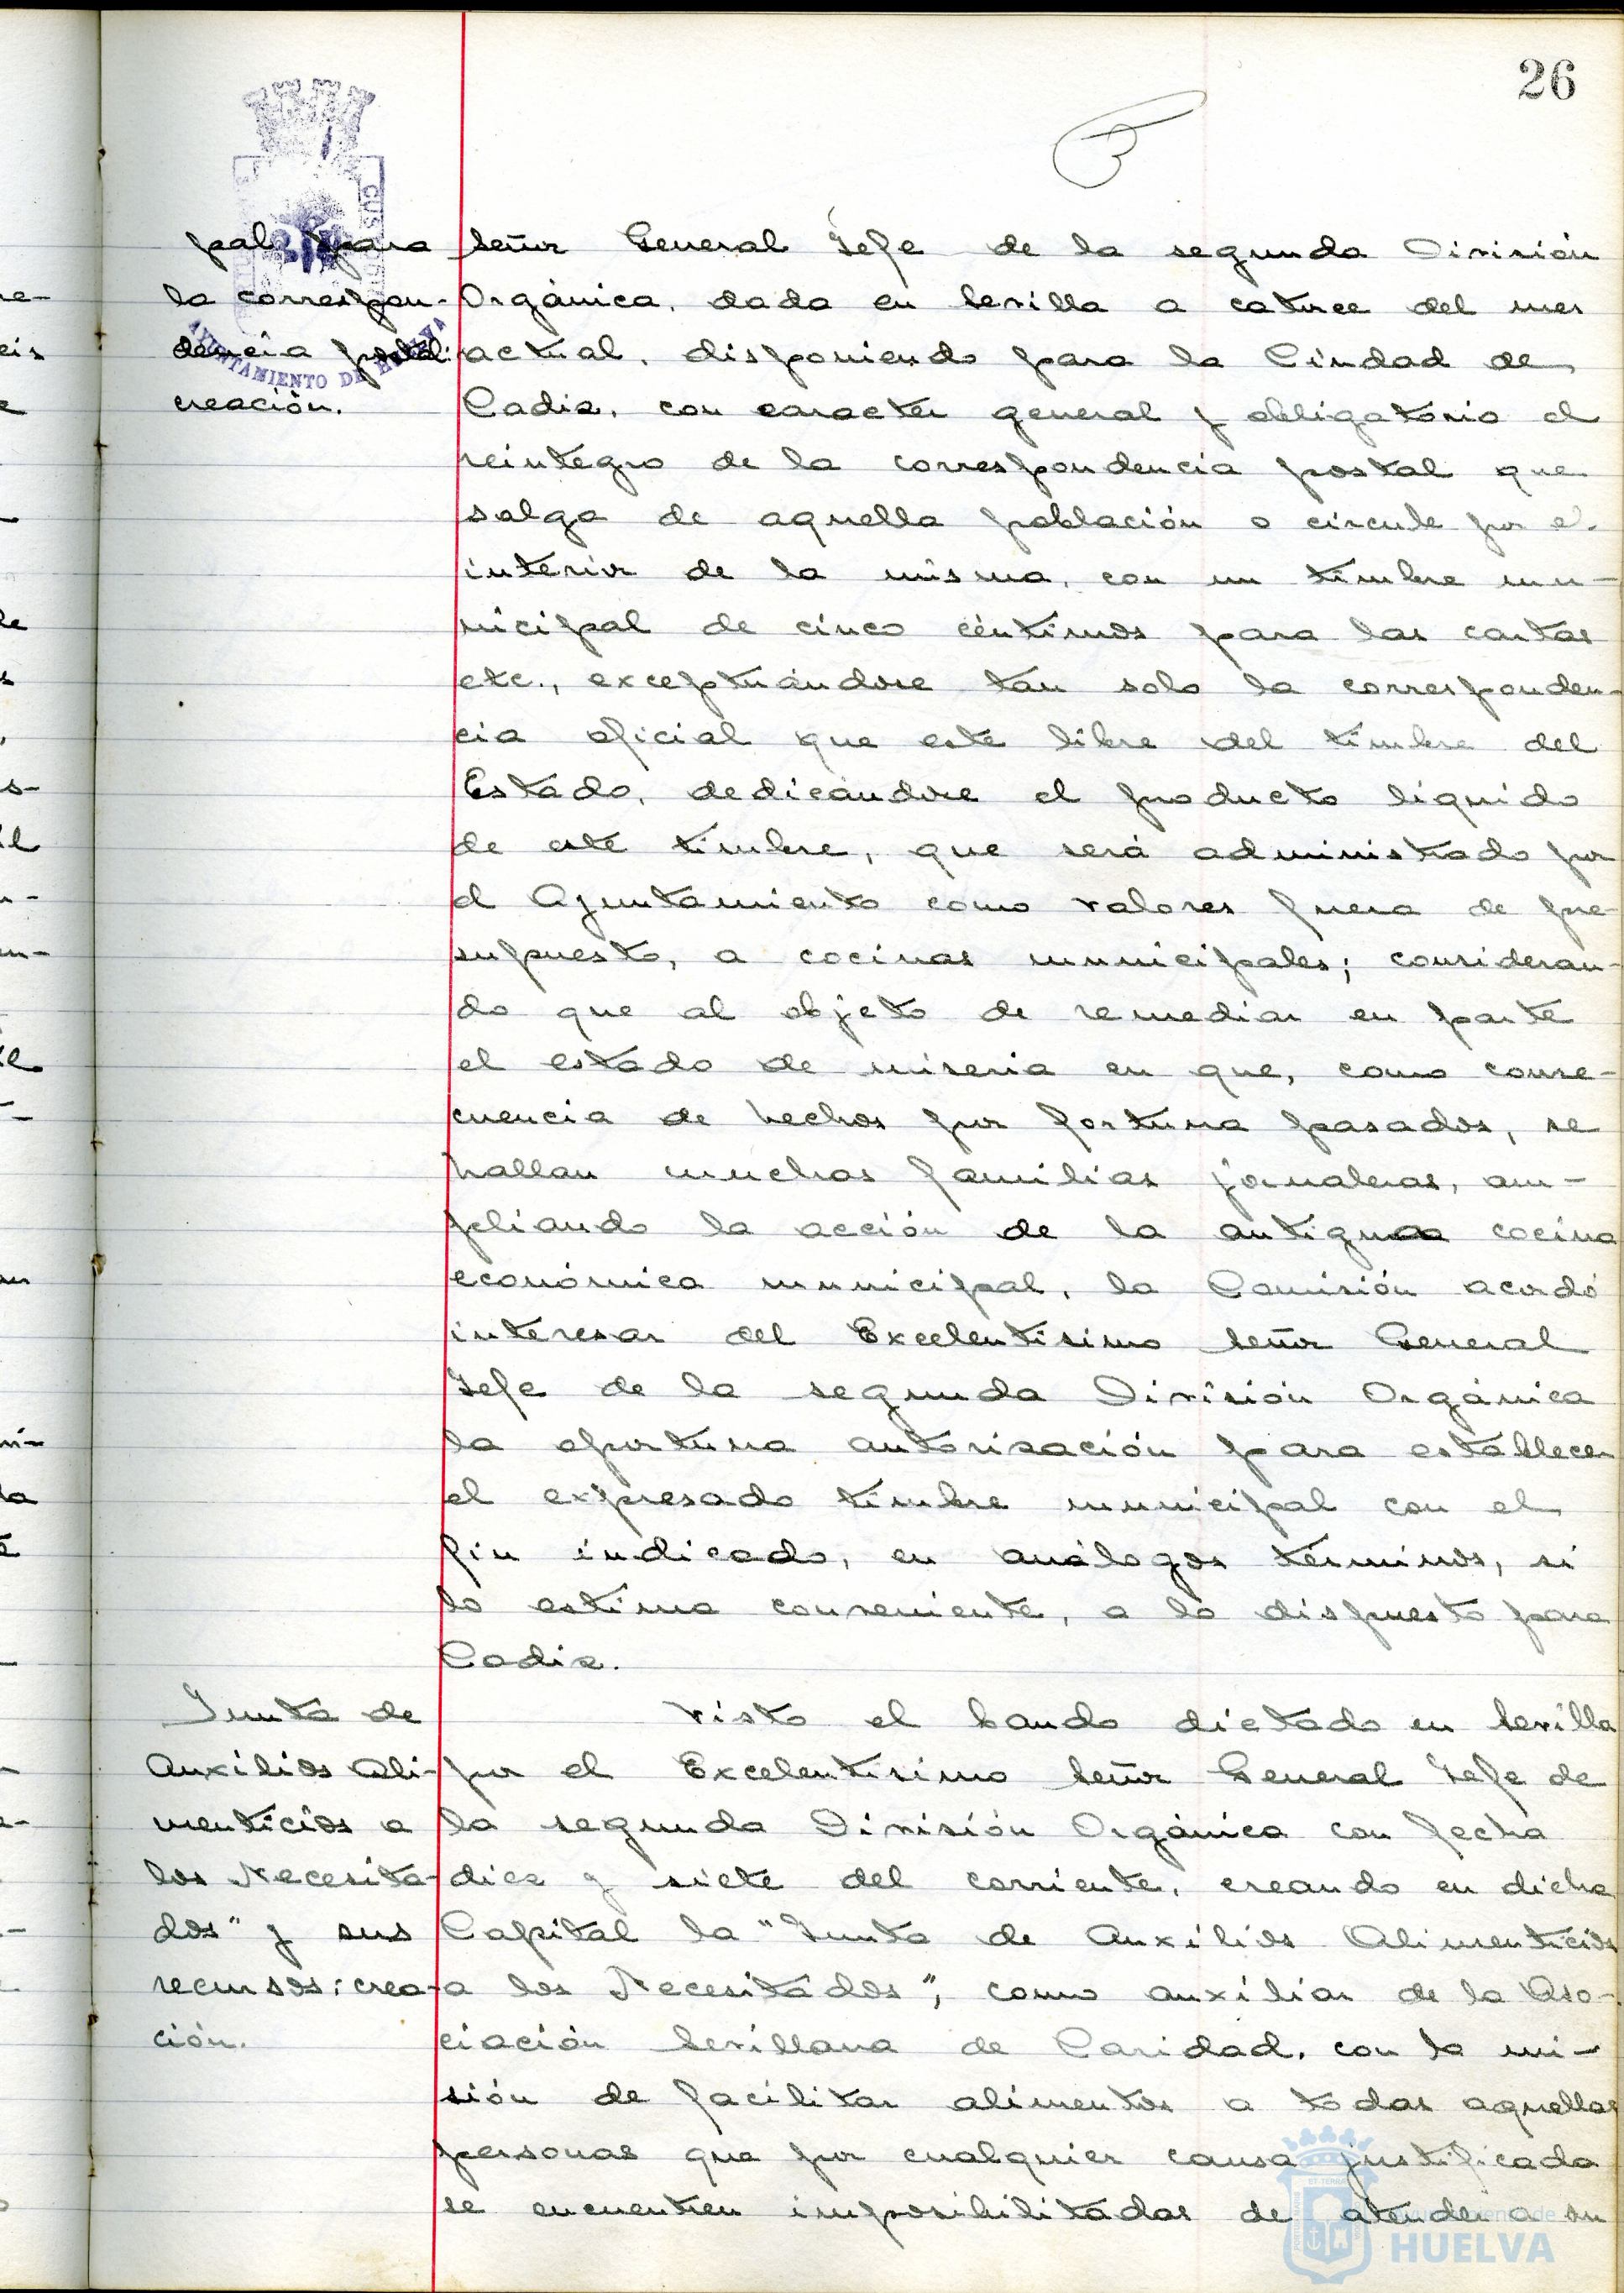 26
pal para
la correspon-
dencia postal:
creación.
señor General Jefe de la segunda División
Orgánica, dada en Sevilla a catorce del mes
actual, disponiendo para la Ciudad de
Cadiz, con caracter general y obligatorio el
reintegro de la correspondencia postal que
salga de aquella población o circule por el
interior de la misma, con un timbre mu-
nicipal de cinco céntimos para las cartas
etc., exceptuándose tan solo la corresponden-
cia oficial que este libre del timbre del
Estado, dedicándose el producto líquido
de este timbre, que será administrado por
el Ayuntamiento como valores fuera de pre-
supuesto, a cocinas municipales; consideran-
do que al objeto de remediar en parte
el estado de miseria en que, como conse-
cuencia de hechos por fortuna pasados, se
hallan muchas familias jornaleras, am-
pliando la acción de la antigua cocina
económica municipal, la Comisión acordó
interesar del Excelentísimo señor General
Jefe de la segunda División Orgánica
la oportuna autorización para establecer
el expresado timbre municipal con el
fin indicado, en análogos términos, si
lo estima conveniente, a lo dispuesto para
Cadiz.
Junta de
Auxilios Ali-
menticios a
los Necesita-
dos" y sus
recursos: crea-
ción.
Visto el bando dictado en Sevilla
por el Excelentísimo señor General Jefe de
la segunda División Orgánica con fecha
diez y siete del corriente, creando en dicha
Capital la "Junta de Auxilios Alimenticios
a los Necesitados", como auxiliar de la Aso-
ciación Sevillana de Caridad, con la mi-
sión de facilitar alimentos a todas aquellas
personas que por cualquier causa justificada
se encuentren imposibilitadas de atender a su
AYUNTAMIENTO DE HUELVA
Ayuntamiento de
HUELVA